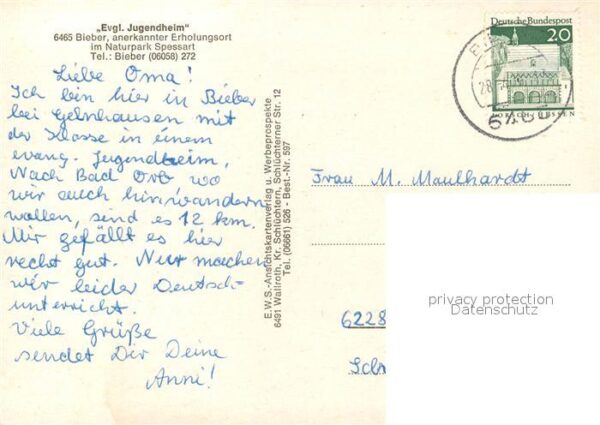 „Evgl. Jugendheim"
6465 Bieber, anerkannter Erholungsort
im Naturpark Spessart
Tel.: Bieber (06058) 272
Liebe Oma!
Ich bin hier in Bieber
bei Gelnhausen mit
der Klasse in einem
evang. Jugendheim.
Nach Bad Orb wo
wir auch hinwandern
wollen, sind es 12 km.
Mir gefällt es hier
recht gut. Nur machen
wir leider Deutsch-
unterricht.
Viele Grüße
sendet Dir Deine
Anni!
E.W.S.-Ansichtskartenverlag u. Werbeprospekte
6491 Wallroth, Kr. Schlüchtern, Schlüchterner Str. 12
Tel. (06661) 526 - Best.-Nr. 597
Deutsche Bundespost
20
LORSCH/HESSEN
Frau M. Maulhardt
6228
privacy protection
Datenschutz